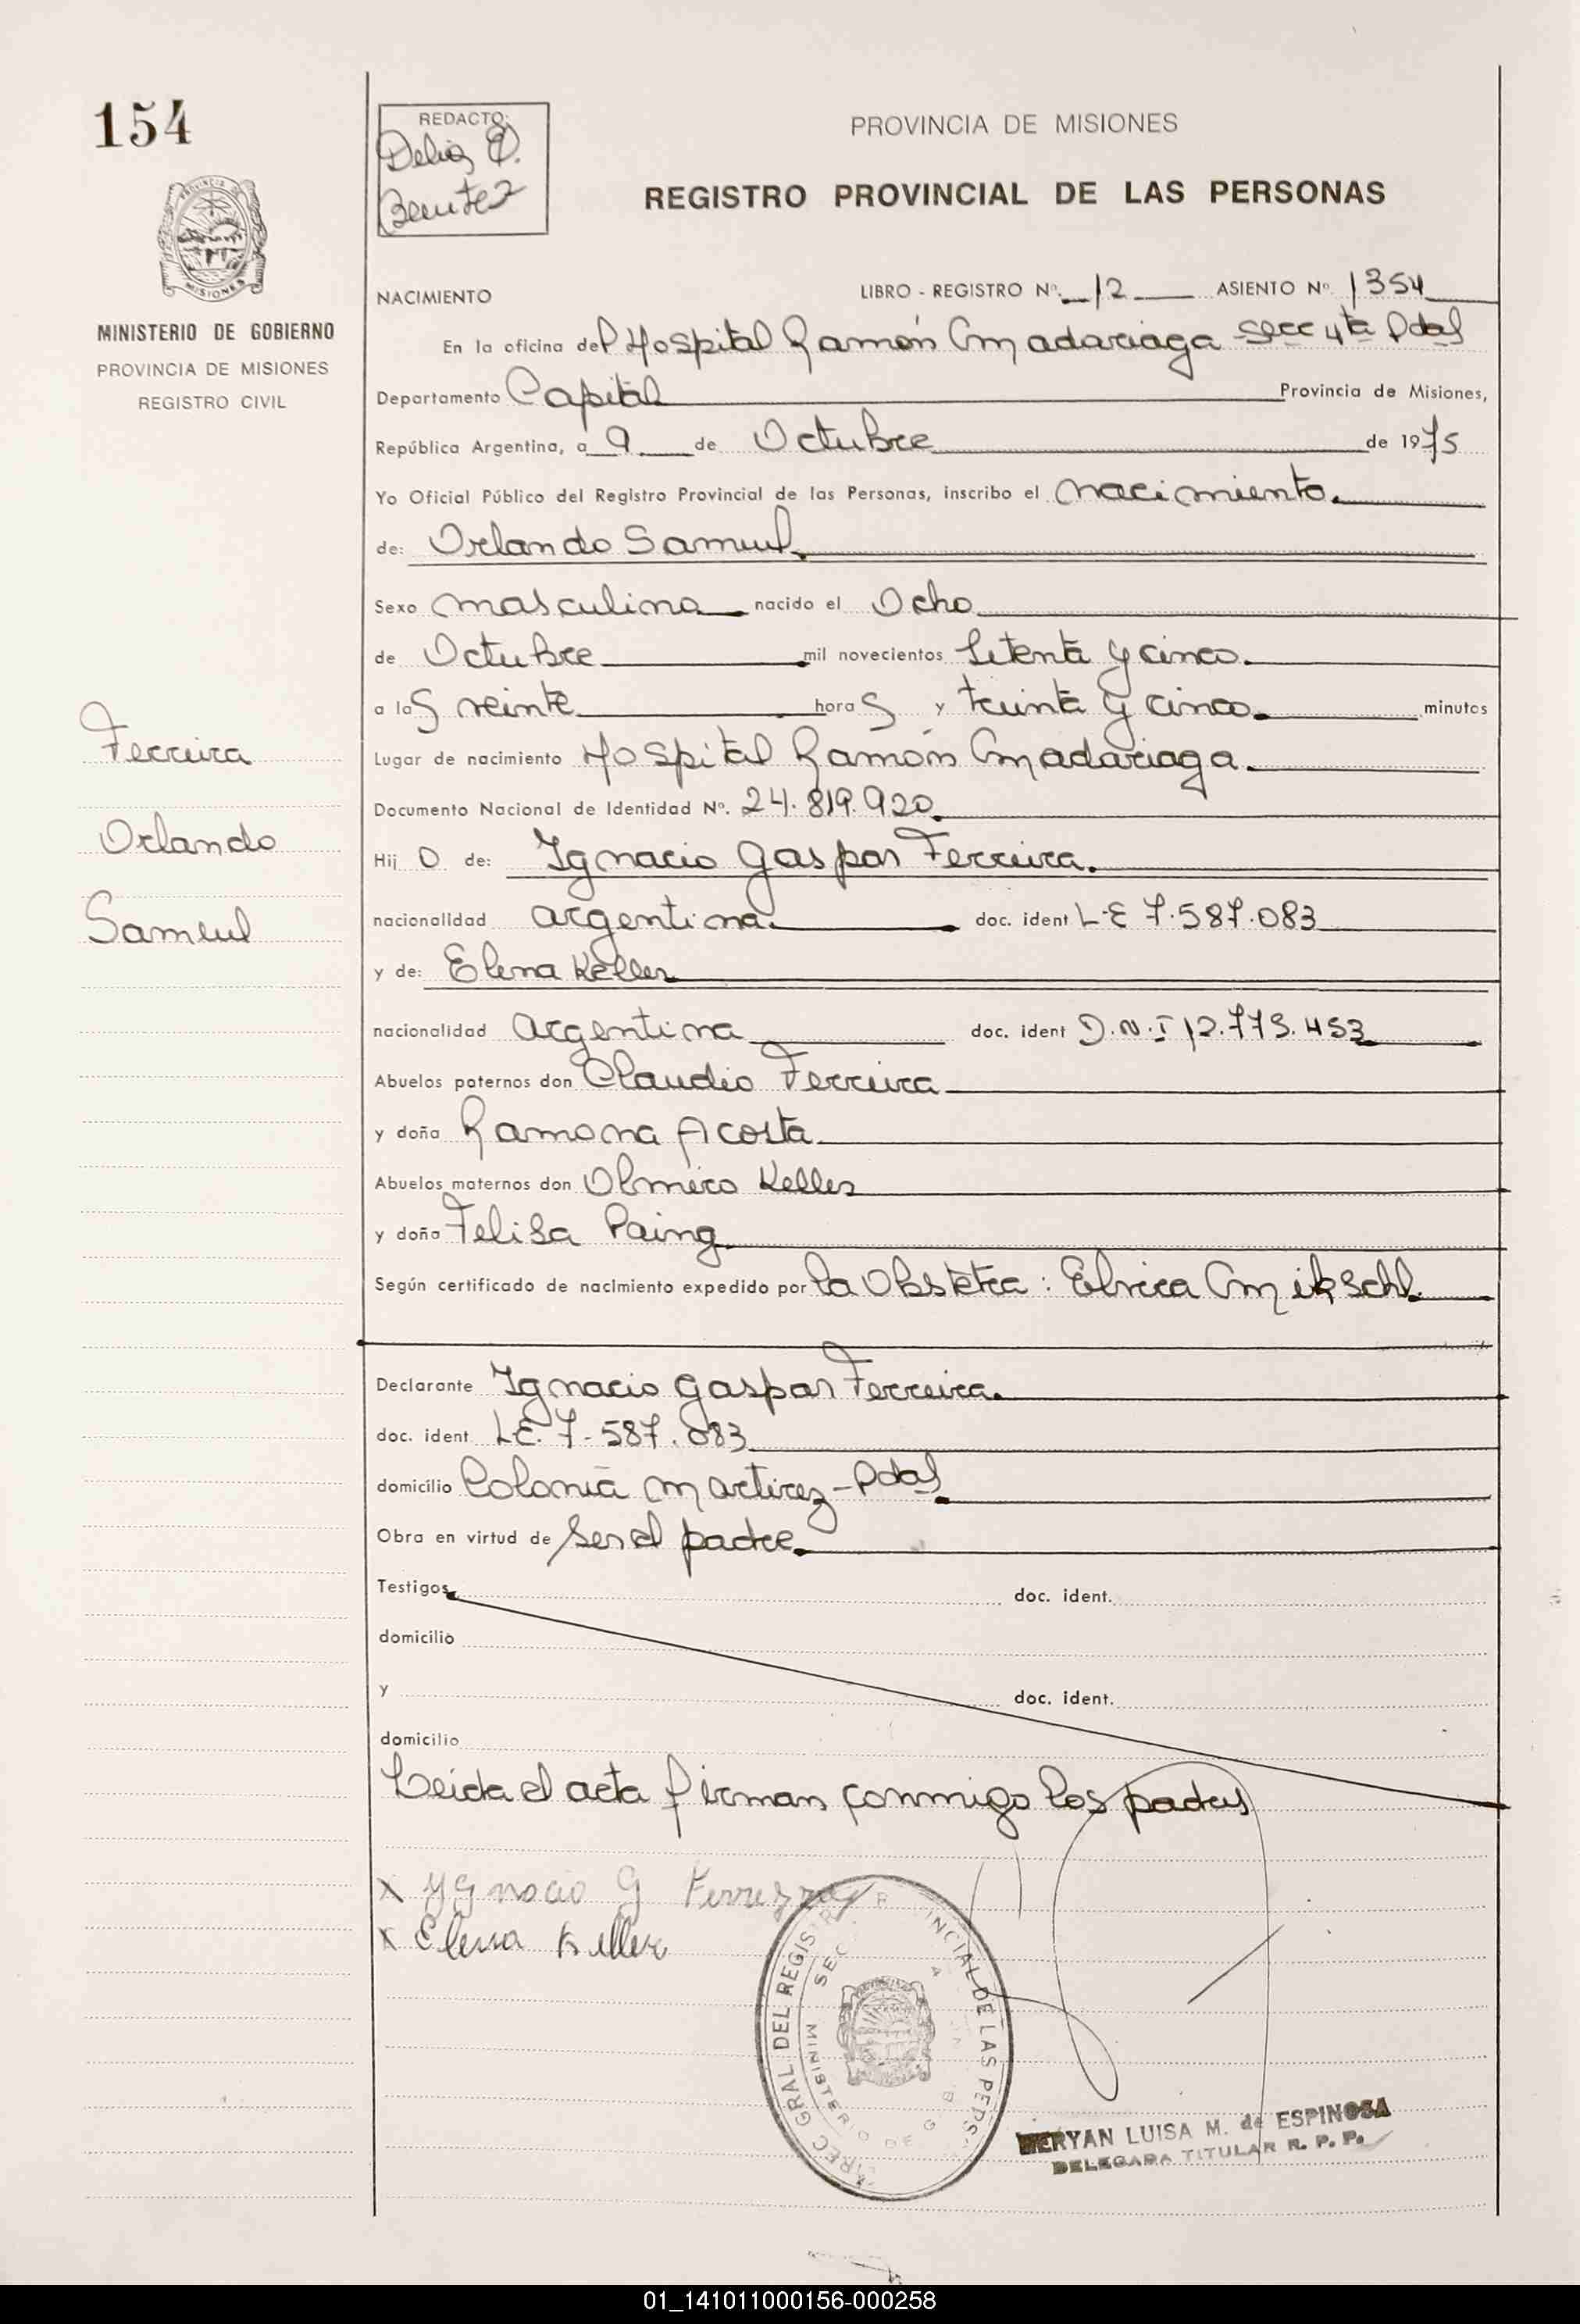 154
REDACTO:
Delia E.
Benitez
PROVINCIA DE MISIONES
REGISTRO PROVINCIAL DE LAS PERSONAS
MISIONES
MINISTERIO DE GOBIERNO
PROVINCIA DE MISIONES
REGISTRO CIVIL
NACIMIENTO LIBRO - REGISTRO Nº. 12 ASIENTO Nº 1354
En la oficina del Hospital Ramón Madariaga Secc 4ta Pdas
Departamento Capital Provincia de Misiones,
República Argentina, a 9 de Octubre de 1975
Yo Oficial Público del Registro Provincial de las Personas, inscribo el nacimiento.
de: Orlando Samuel
Sexo masculino nacido el Ocho
de Octubre mil novecientos setenta y cinco.
a las veinte horas y treinta y cinco minutos
Ferreira
Orlando
Samuel
Lugar de nacimiento Hospital Ramón Madariaga.
Documento Nacional de Identidad Nº. 24.819.920
Hijo de: Ygnacio Gaspar Ferreira.
nacionalidad argentina doc. ident L-E 7.587.083
y de: Elena Keller
nacionalidad argentina doc. ident D.N.I 12.773.453
Abuelos paternos don Claudio Ferreira
y doña Ramona Acosta
Abuelos maternos don Olmiro Keller
y doña Felisa Paing
Según certificado de nacimiento expedido por la Obstetra: Elvira Mikschl.
Declarante Ygnacio Gaspar Ferreira.
doc. ident. L.E. 7-587.083
domicilio Colonia Martirez-Pdas
Obra en virtud de ser el padre
Testigos doc. ident.
domicilio
y doc. ident.
domicilio
Leida el acta firman conmigo los padres
x Ygnacio G Ferreyra
x Elena Keller
DIREC GRAL DEL REGISTR INCIAL DE LAS PERS.
MINISTERIO DE G
MERYAN LUISA M. de ESPINOSA
DELEGADA TITULAR R. P. P.
01_141011000156-000258